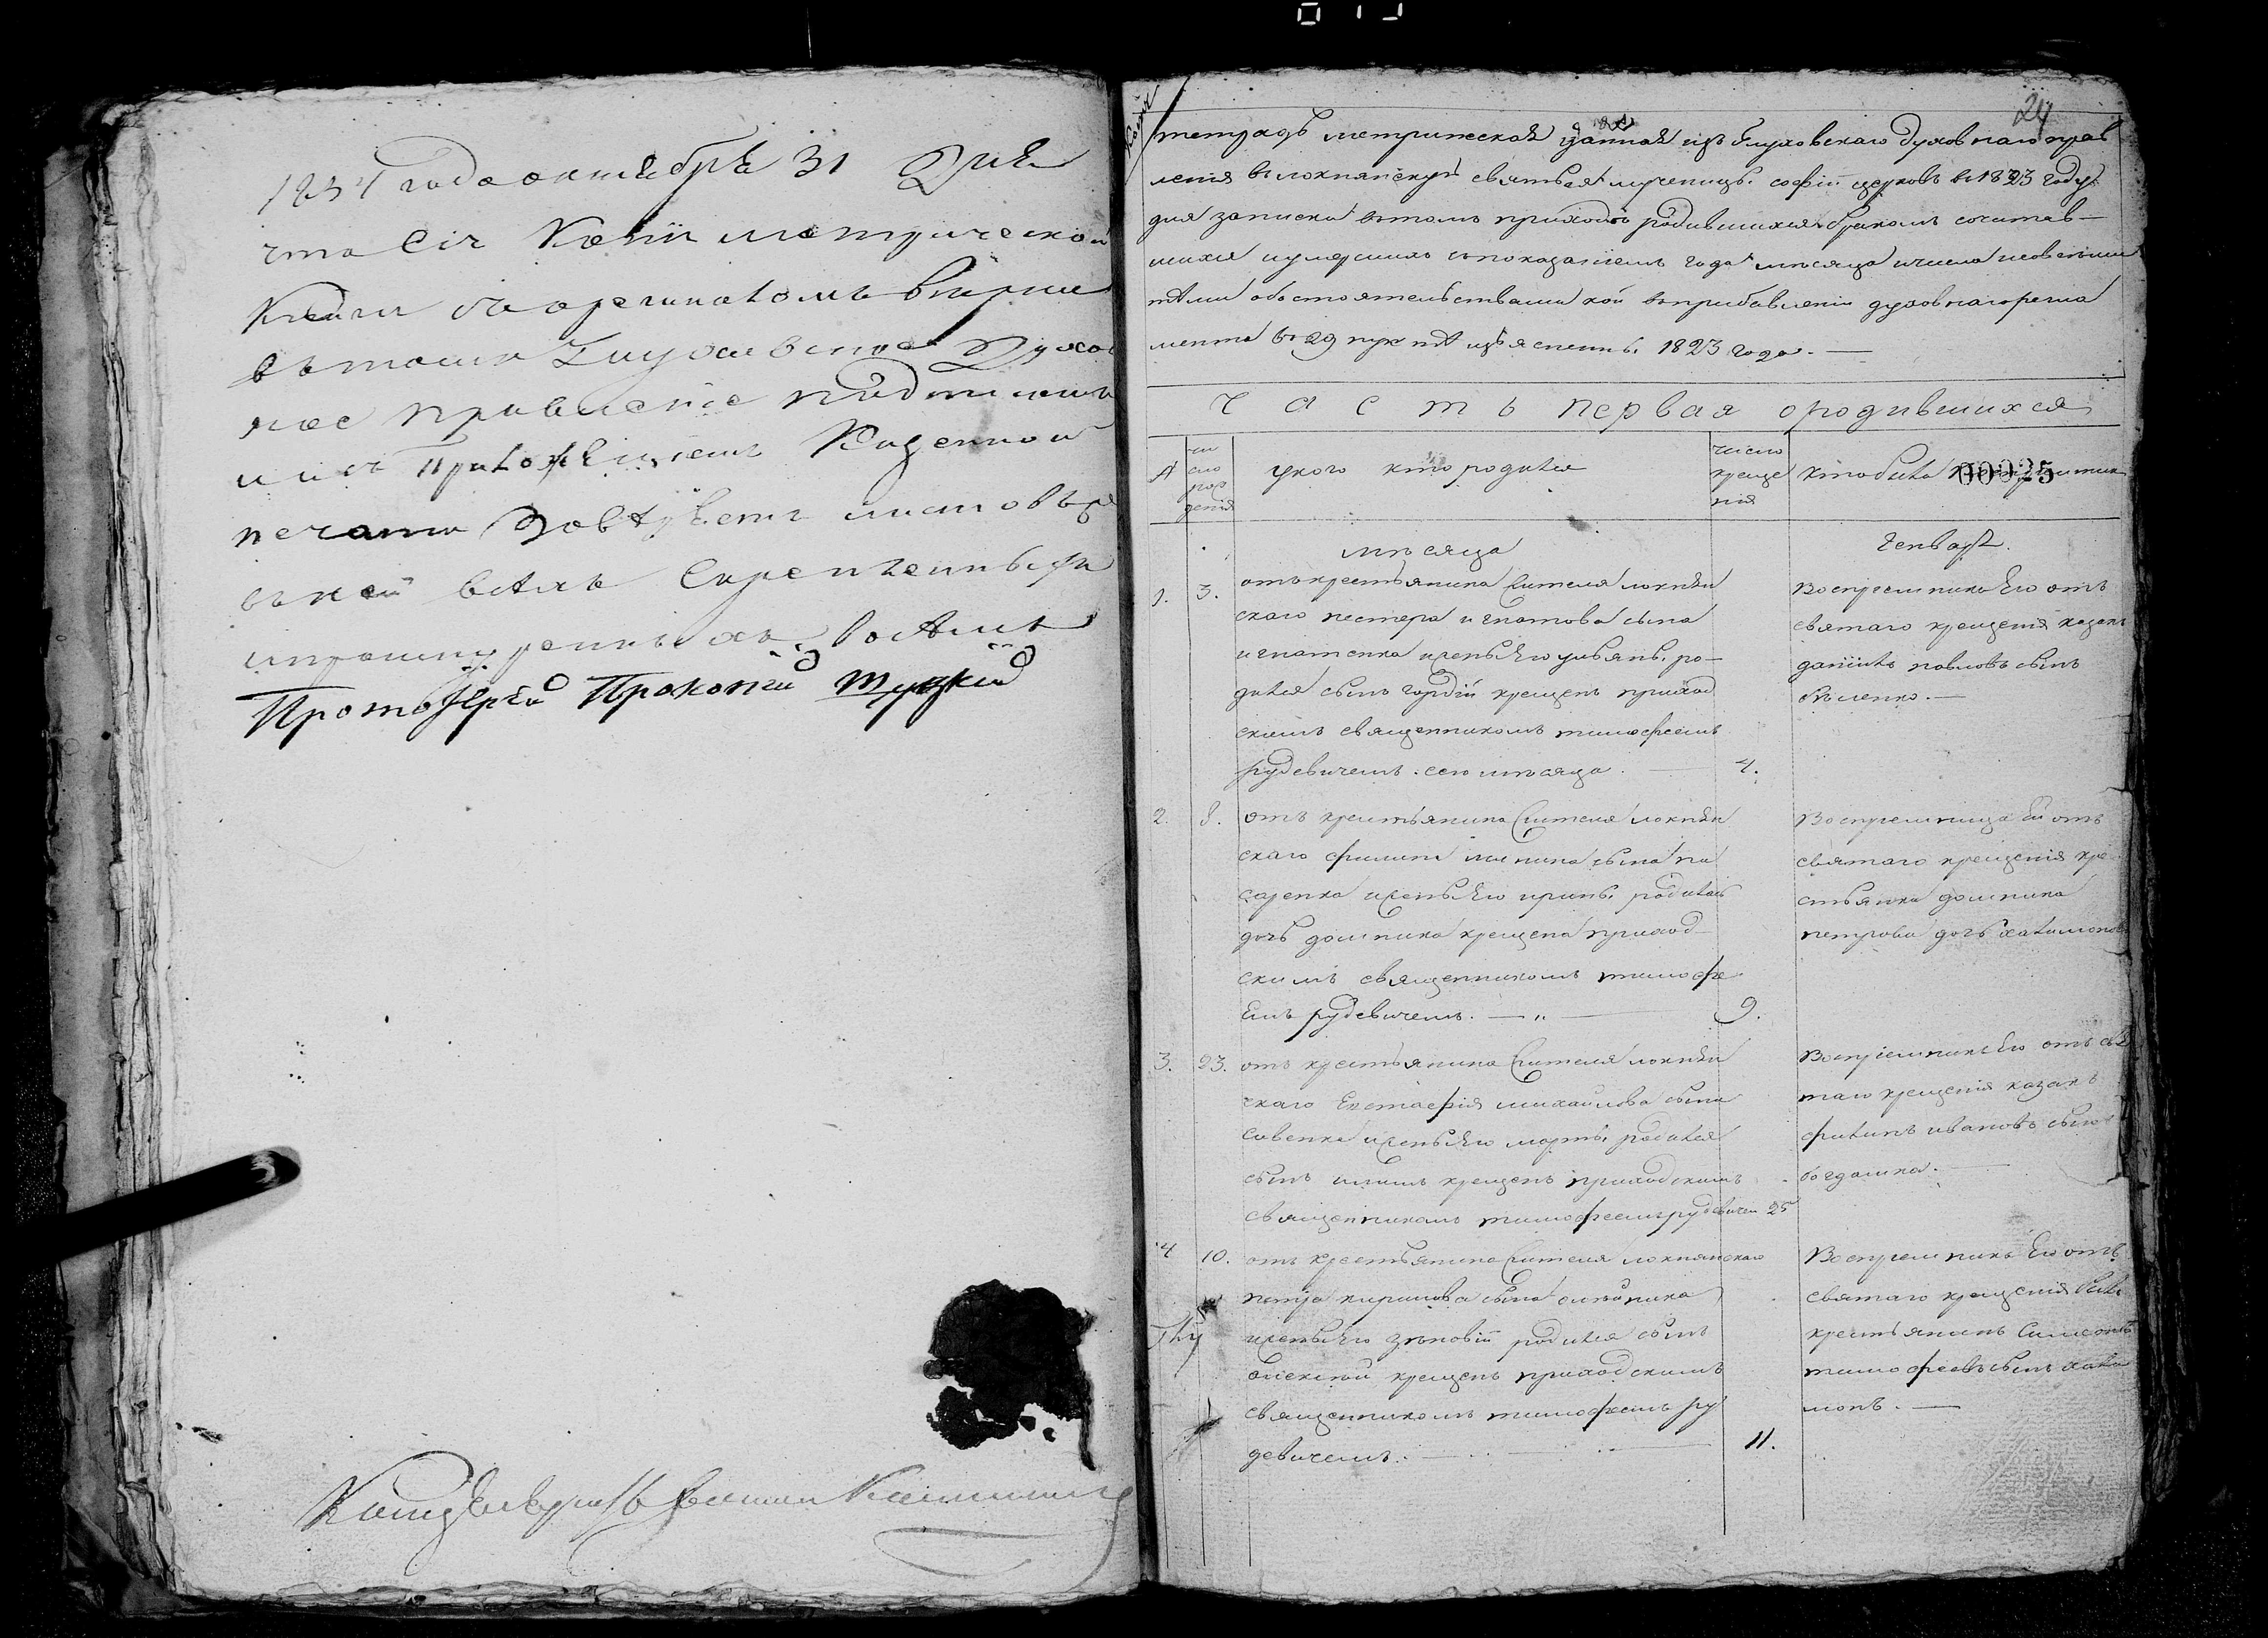 1834 года октября 31 дня
что сія копіи метрической
книги съ оригиналомъ верна
въ томъ Глуховское Духов
ное правленіе подписомъ
и съ приложеніемъ казенной
печати листовъ
въ ней всехъ скрепленныхъ

Протоіерей Прокопій Туцкій
24
Копія
тетрадь метрическая данная изъ глуховскаго духовнаго прав
ленія въ локнянскую святыя мученицы софіи церковь въ 1823 году
для записки въ томъ приходѣ родившихся бракомъ сочитав-
шихся и умершихъ съ показаніемъ года мѣсяца и числа и со всѣми
тѣми обстоятельствами кои въ прибавленіи духовнаго регла
мента въ 29 пунктѣ изъяснены. 1823 года. —
Часть первая о родившихся
чи
сло
рож
денія
у кого кто родился
число
креще
нія
кто былъ
00025
мѣсяца
Генваря.
1. 3. отъ крестьянина жителя локнян
скаго нестера игнатова сына
игнатенка и жены его ульяны. ро-
дился сынъ гордій крещенъ приход
скимъ священникомъ тимофеемъ
рудевичемъ. сего мѣсяца. — 4.
Воспремника его отъ
святаго крещенія казакъ
даніилъ павловъ сынъ
бѣленко. —
2. 8. отъ крестьянина жителя локнян
скаго филипа минина сына пи
саренка и жены его ирины. родилась
дочь домника крещена приход-
скимъ священникомъ тимофе
емъ рудевичемъ. — 9.
Воспремница ей отъ
святаго крещенія кре
стьянка домника
петрова дочь халимонова
3. 23. отъ крестьянина жителя локнян
скаго Евстафія михайлова сына
савенка и жены его марты. родился
сынъ крещенъ приходскимъ
священникомъ тимофеемъ рудевичем 25
Воспріемникъ Его отъ свя
таго крещенія казакъ
филипъ ивановъ сынъ
богдашка. —
4 10. отъ крестьянина жителя локнянскаго
петра кирилова сына олѣйника
и жены его зѣновіи родился сынъ
алексѣй крещенъ приходскимъ
священникомъ тимофеемъ ру
девичемъ. — 11.
Воспремникъ Его отъ
святаго крещенія былъ
крестьянинъ Симеонъ
тимофеевъ сынъ хали
монъ. —